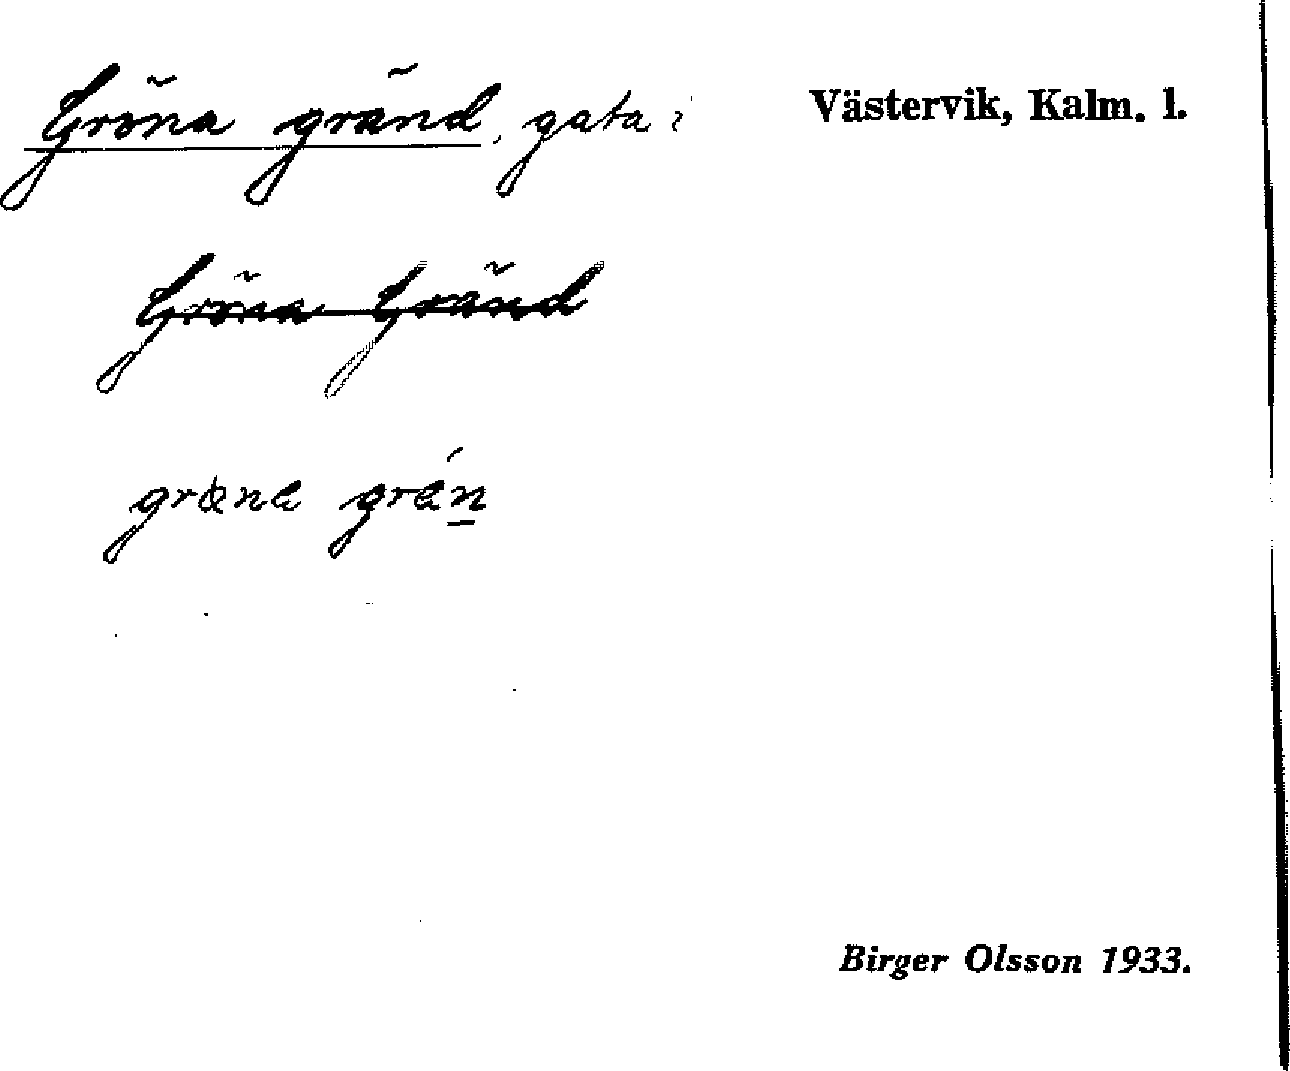 Gröna gränd, gata i Västervik, Kalm. l.
Gröna Gränd
grøna grän
Birger Olsson 1933.